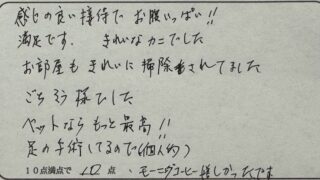 感じの良い接待でお腹いっぱい!!
満足です。 きれいなカニでした
お部屋もきれいに掃除もされてました
ごちそう様でした
ベットならもっと最高!!
足の手術してるので(個人的)
10点満点で 10 点 ・モーニングコーヒー欲しかったです